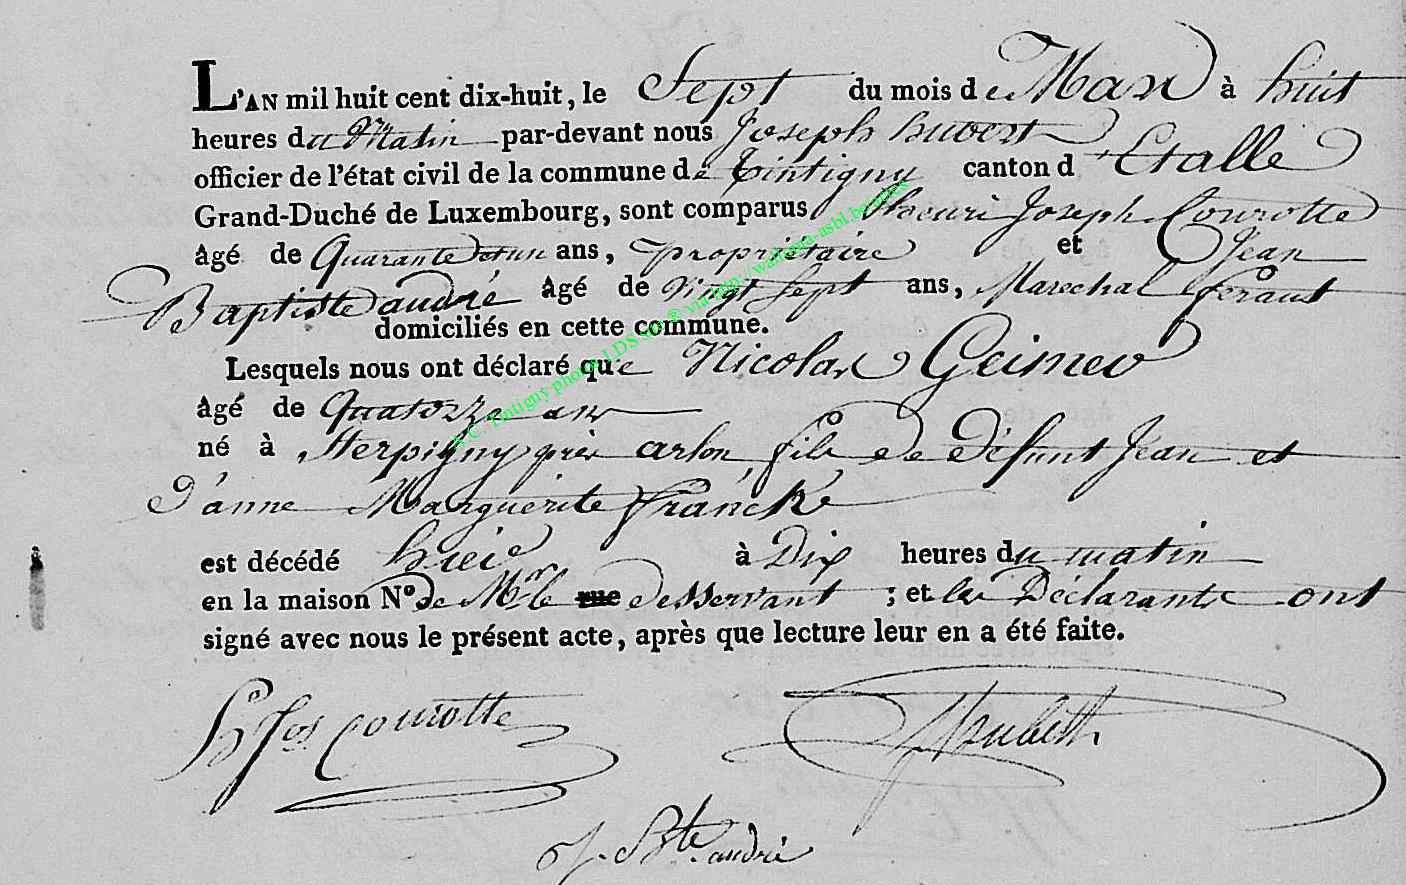 L'AN mil huit cent dix-huit, le Sept du mois de Mars à huit
heures du Matin par-devant nous Joseph hubert
officier de l'état civil de la commune de Tintigny canton d'Etalle
Grand-Duché de Luxembourg, sont comparus Henri Joseph Courotte
âgé de Quarante et un ans, propriétaire et Jean
Baptiste andré âgé de vingt Sept ans, Marechal feraut
domiciliés en cette commune.
Lesquels nous ont déclaré que Nicolas Geimer
âgé de Quatorze ans
né à Sterpigny près arlon, fils de Défunt Jean et
D'anne Marguerite franck
est décédé hier à Dix heures du matin
en la maison N° de Mr le rue desservant ; et les Déclarants ont
signé avec nous le présent acte, après que lecture leur en a été faite.
h Jos Courotte
J hubert
J. Bte. andré
A.C. Tintigny photos LDS via http://wallonia-asbl.be/actes